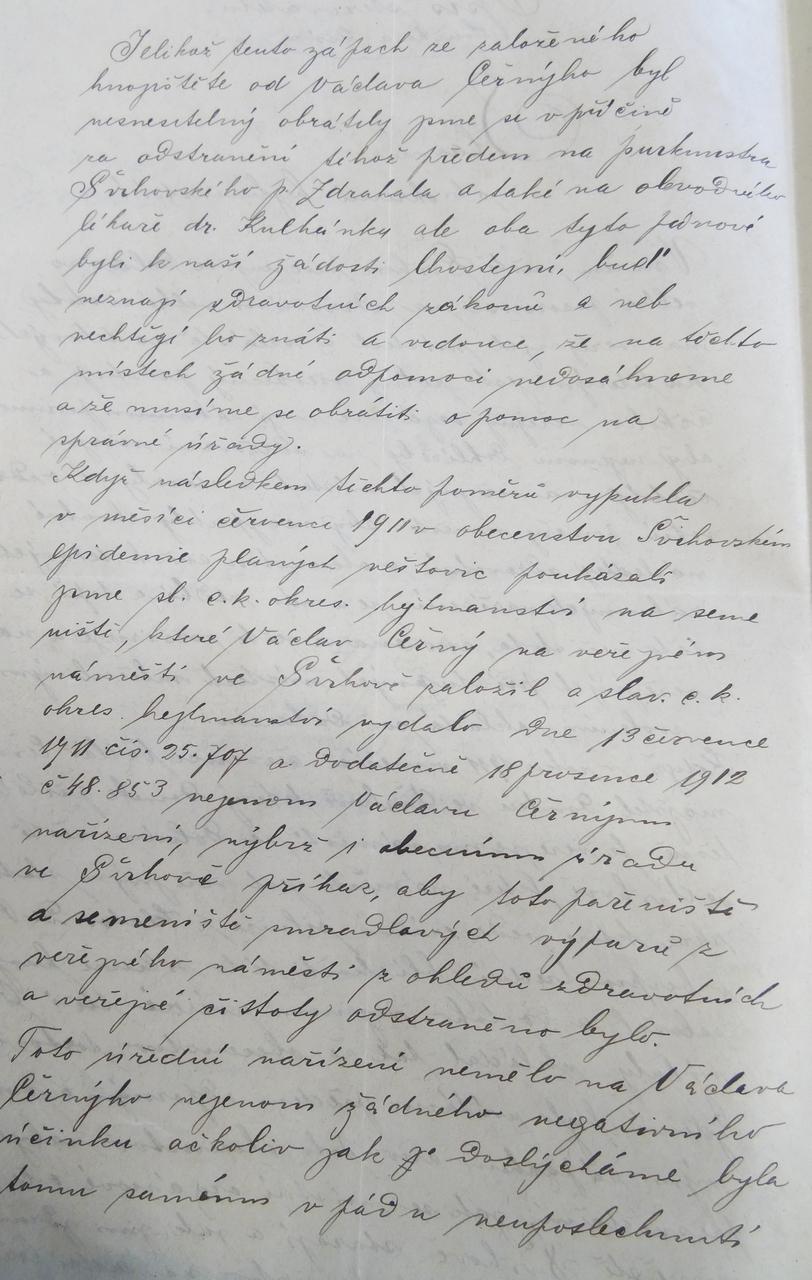 Jelikož tento zápach ze založeného
hnojištěte od Václava Černýho byl
nesnesitelný obrátily jsme se v příčině
za odstranění téhož předem na purkmistra
Švihovského p. Zdrahala a také na obvodního
lékaře dr. Kulhánka ale oba tyto pánové
byli k naší žádosti lhostejní, buď
neznají zdravotních zákonů a neb
nechtějí ho znáti a vidouce, že na těchto
místech žádné odpomoci nedosáhneme
a že musíme se obrátiti o pomoc na
správné úřady.
Když následkem těchto poměrů vypukla
v měsíci července 1911 v obecenstvu Švihovském
epidemie planých neštovic poukázali
jsme sl. c. k. okres. hejtmanství na seme
niště, které Václav Černý na veřejném
náměstí ve Švihově založil a slav. c. k.
okres. hejtmanství vydalo dne 13 července
1911 čís. 25.707 a dodatečně 18 prosence 1912
č 48.853 nejenom Václavu Černýmu
nařízení, nýbrž i obecnímu úřadu
ve Švihově příkaz, aby toto pařeniště
a semeniště smradlavých výparů z
veřejného náměstí z ohledů zdravotních
a veřejné čistoty odstraněno bylo.
Toto úřední nařízení nemělo na Václava
Černýho nejenom žádného negativního
účinku ačkoliv jak doslýcháme byla
tomu samému v pádu neuposlechnutí